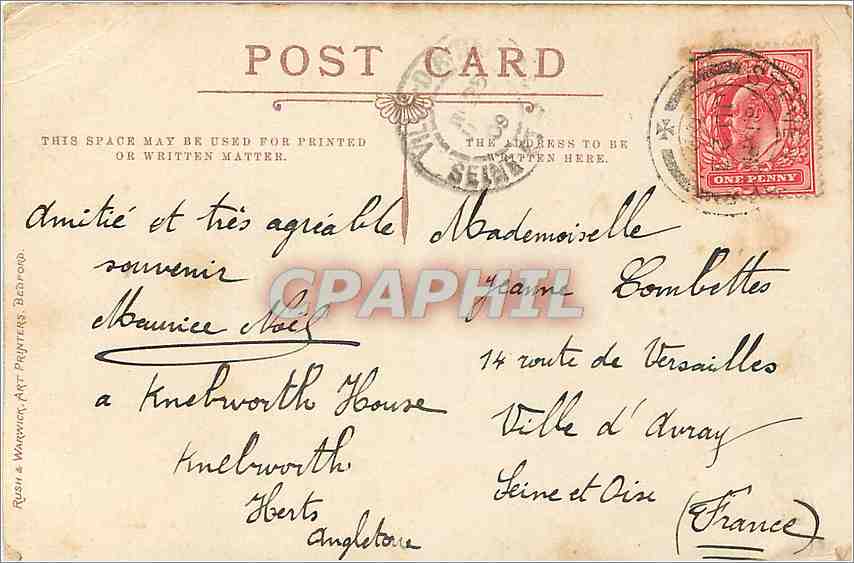 POST CARD
THIS SPACE MAY BE USED FOR PRINTED
OR WRITTEN MATTER.
THE ADDRESS TO BE
WRITTEN HERE.
ONE PENNY
SEINE
09
Amitié et très agréable
souvenir
Maurice Noël
a Knebworth House
Knebworth
Herts
Angleterre
Mademoiselle
Jeanne Combettes
14 route de Versailles
Ville d'Avray
Seine et Oise
(France)
CPAPHIL
RUSH & WARWICK, ART PRINTERS, BEDFORD.